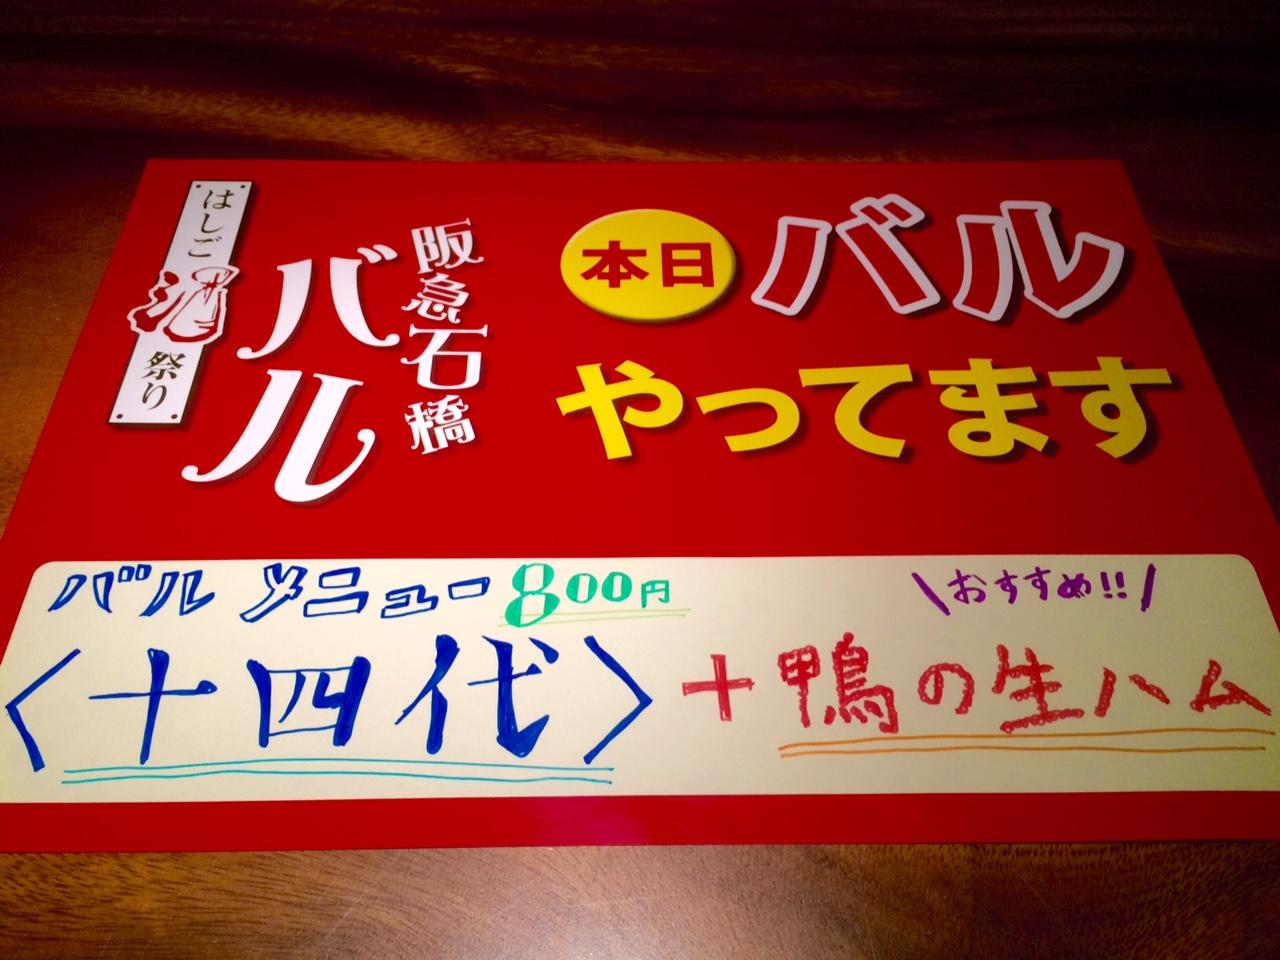 本日 バル
やってます
阪急石橋
バル
はしご酒祭り
バルメニュー 800円
\おすすめ!!/
〈十四代〉+鴨の生ハム